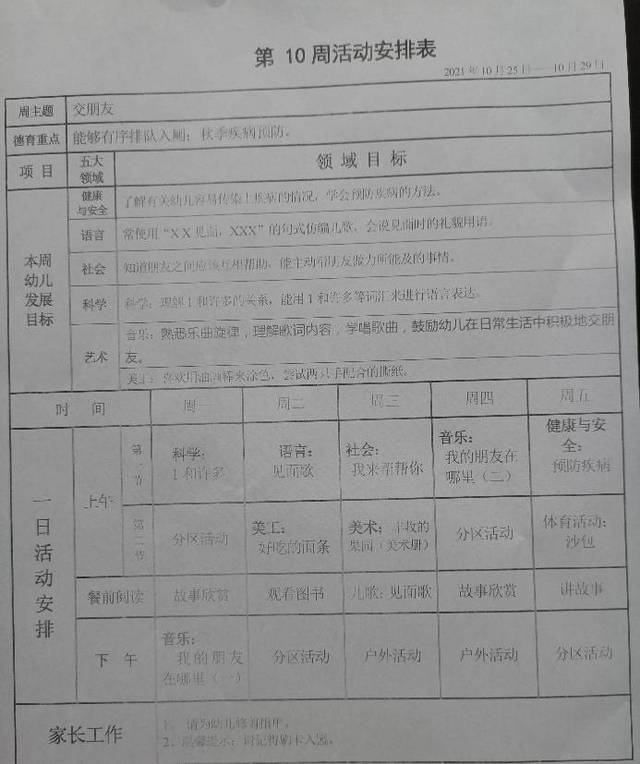 第 10周活动安排表
2021年10月25日——10月29日
周主题 交朋友
德育重点 能够有序排队入厕；秋季疾病预防。
项 目 五大领域 领 域 目 标
本周幼儿发展目标
健康与安全 了解有关幼儿容易传染上疾病的情况，学会预防疾病的方法。
语言 常使用“XX见面，XXX”的句式仿编儿歌，会说见面时的礼貌用语。
社会 知道朋友之间应该互相帮助、能主动帮朋友做力所能及的事情。
科学 科学：理解1和许多的关系，能用1和许多等词汇来进行语言表达。
艺术 音乐：熟悉乐曲旋律，理解歌词内容，学唱歌曲，鼓励幼儿在日常生活中积极地交朋
友。
美工：喜欢用油画棒来涂色，尝试两只手配合的撕纸。
时 间 周一 周二 周三 周四 周五
一日活动安排
上午 第一节 科学：1和许多 语言：见面歌 社会：我来帮帮你 音乐：我的朋友在哪里（二） 健康与安全：预防疾病
第二节 分区活动 美工：好吃的面条 美术：丰收的果园（美术册） 分区活动 体育活动：沙包
餐前阅读 故事欣赏 观看图书 儿歌：见面歌 故事欣赏 讲故事
下 午 音乐：我的朋友在哪里（一） 分区活动 户外活动 户外活动 分区活动
家长工作
1、请为幼儿修剪指甲。
2、温馨提示：请记得刷卡入园。